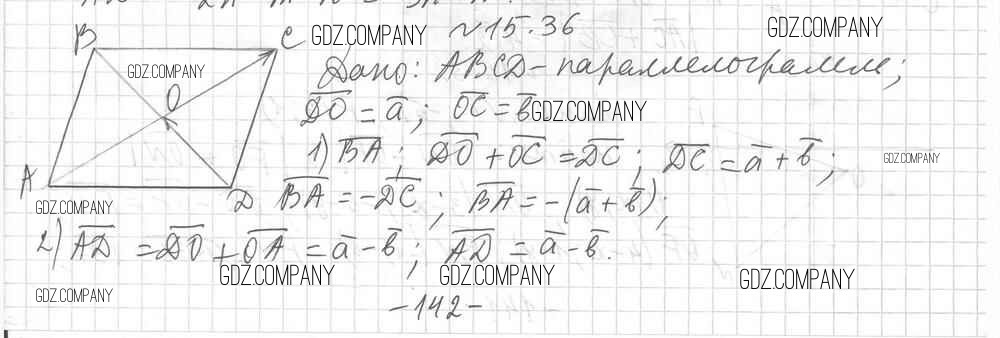 B C GDZ.COMPANY №15.36 GDZ.COMPANY
GDZ.COMPANY Дано: ABCD - параллелограмм;
O $\overline{DO} = \bar{a}$; $\overline{OC} = \bar{b}$ GDZ.COMPANY
1) $\overline{BA}$; $\overline{DO} + \overline{OC} = \overline{DC}$; $\overline{DC} = \bar{a} + \bar{b}$; GDZ.COMPANY
A D $\overline{BA} = -\overline{DC}$; $\overline{BA} = -(\bar{a} + \bar{b})$;
GDZ.COMPANY
2) $\overline{AD} = \overline{DO} + \overline{OA} = \bar{a} - \bar{b}$; $\overline{AD} = \bar{a} - \bar{b}$.
GDZ.COMPANY GDZ.COMPANY GDZ.COMPANY
GDZ.COMPANY -142-